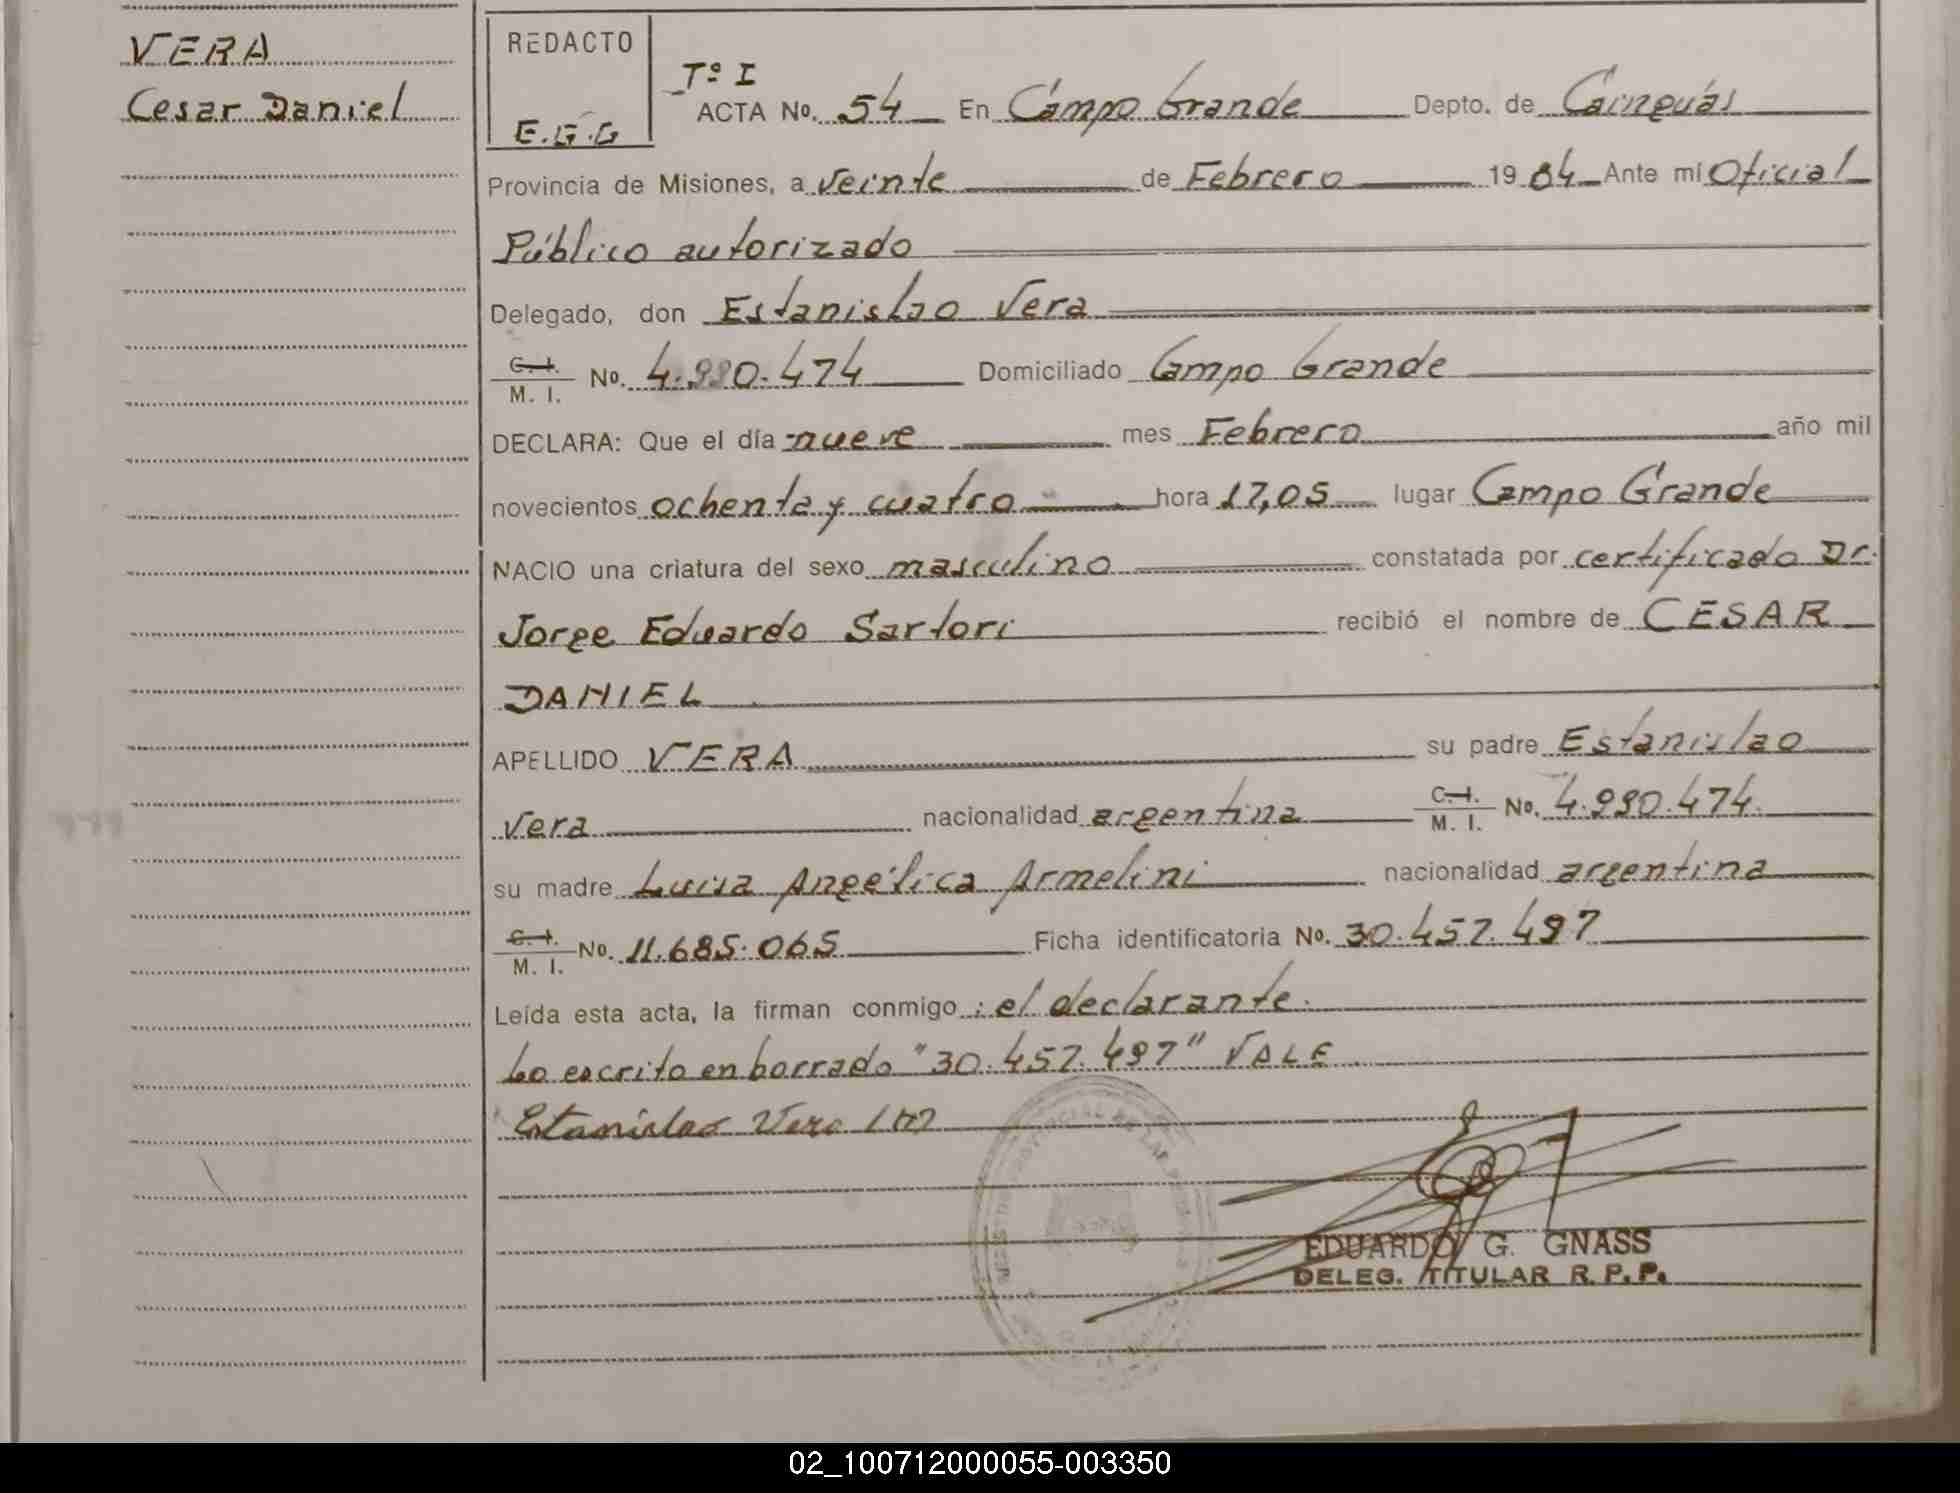 VERA
Cesar Daniel
REDACTO
E.G.G
Tº I
ACTA No. 54 En Campo Grande Depto. de Cainguás
Provincia de Misiones, a veinte de Febrero 1984 Ante mí Oficial
Público autorizado
Delegado, don Estanislao Vera
C. I. M. I. No. 4.990.474 Domiciliado Campo Grande
DECLARA: Que el día nueve mes Febrero año mil
novecientos ochenta y cuatro hora 17,05 lugar Campo Grande
NACIO una criatura del sexo masculino constatada por certificado Dr.
Jorge Eduardo Sartori recibió el nombre de CESAR
DANIEL
APELLIDO VERA su padre Estanislao
Vera nacionalidad argentina C. I. M. I. No. 4.990.474.
su madre Luisa Angélica Armelini nacionalidad argentina
C. I. M. I. No. 11.685.065 Ficha identificatoria No. 30.457.497
Leída esta acta, la firman conmigo: el declarante.
Lo escrito en borrado "30.457.497" VALE
Estanislao Vera
EDUARDO G. GNASS
DELEG. TITULAR R. P. P.
02_100712000055-003350